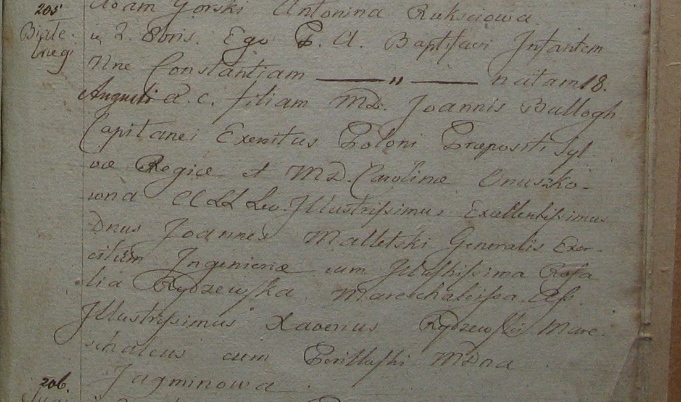 205 Adam Gorski Antonina Ruksaowa.
Biale- u 2. 8bris. Ego P. A. Baptisavi Infantem
Nne Constantiam — " — natam 18.
Augusti a. c. filiam MD. Joannis Ballogh
Capitanei Exercitus Poloni Praepositi Syl
vae Regiae et MD. Carolinae Onuszko-
Illustrissimus Excellentissimus
Dnus Joannes Malletski Generalis Exer-
citum Ingenieriae cum Illustrissima Rosa
lia Rydzewska
Illustrissimus Xaverius Rydzewski Mare
schalcus cum MDna
206. Jagminowa